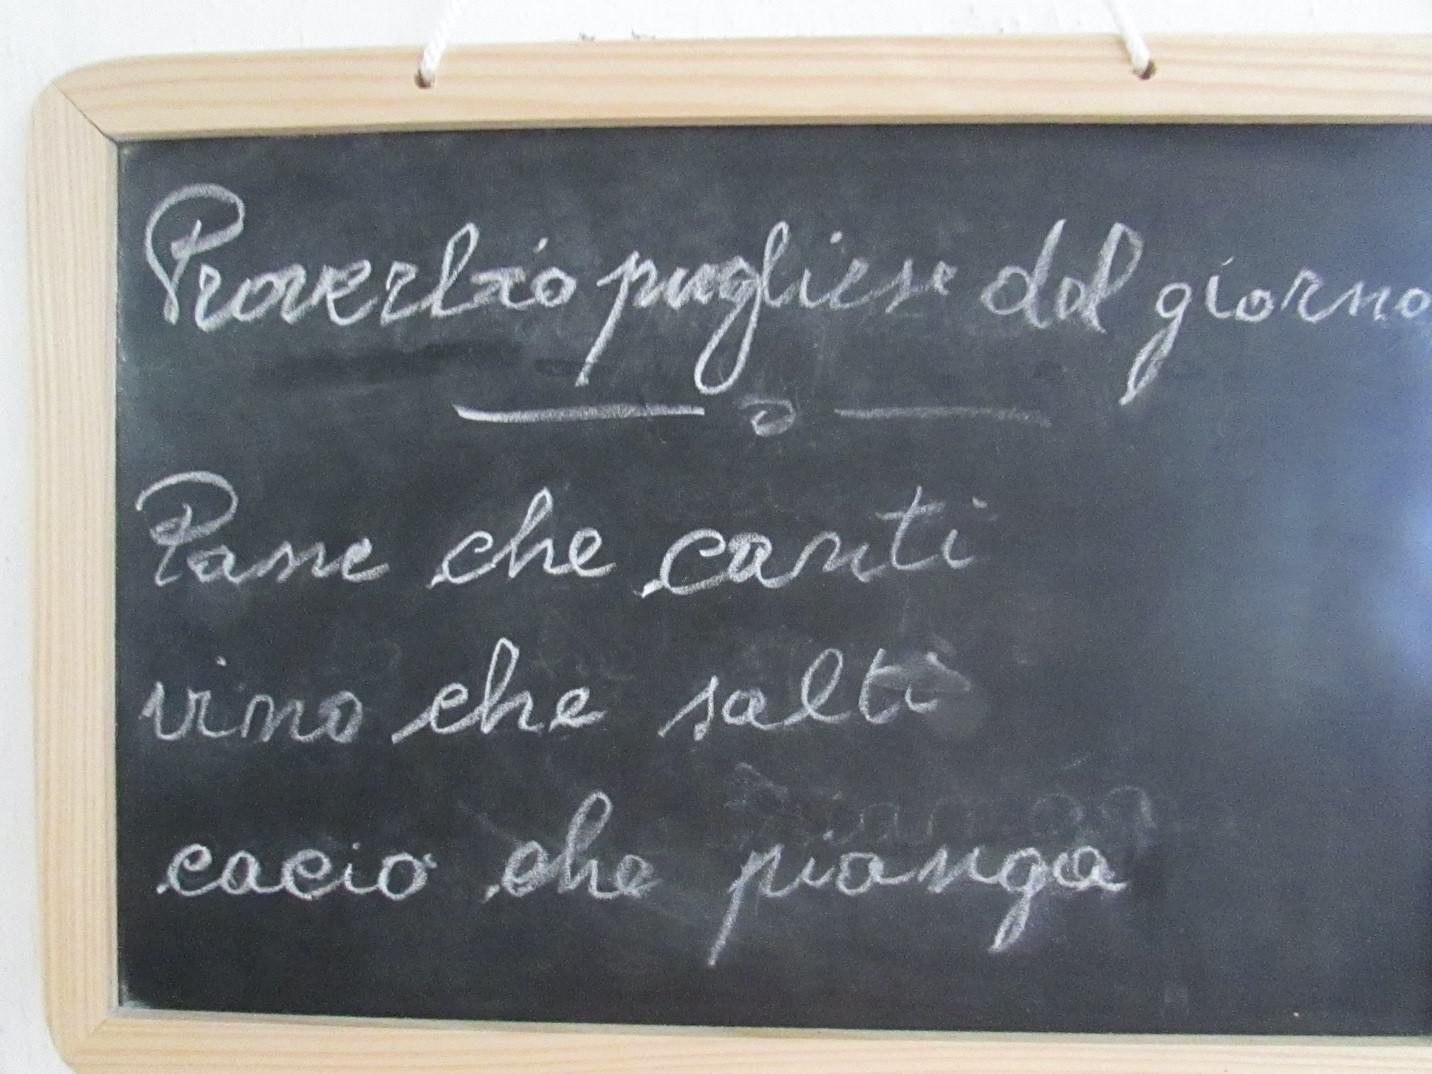 Proverbio pugliese del giorno
Pane che canti
vino che salti
cacio che pianga